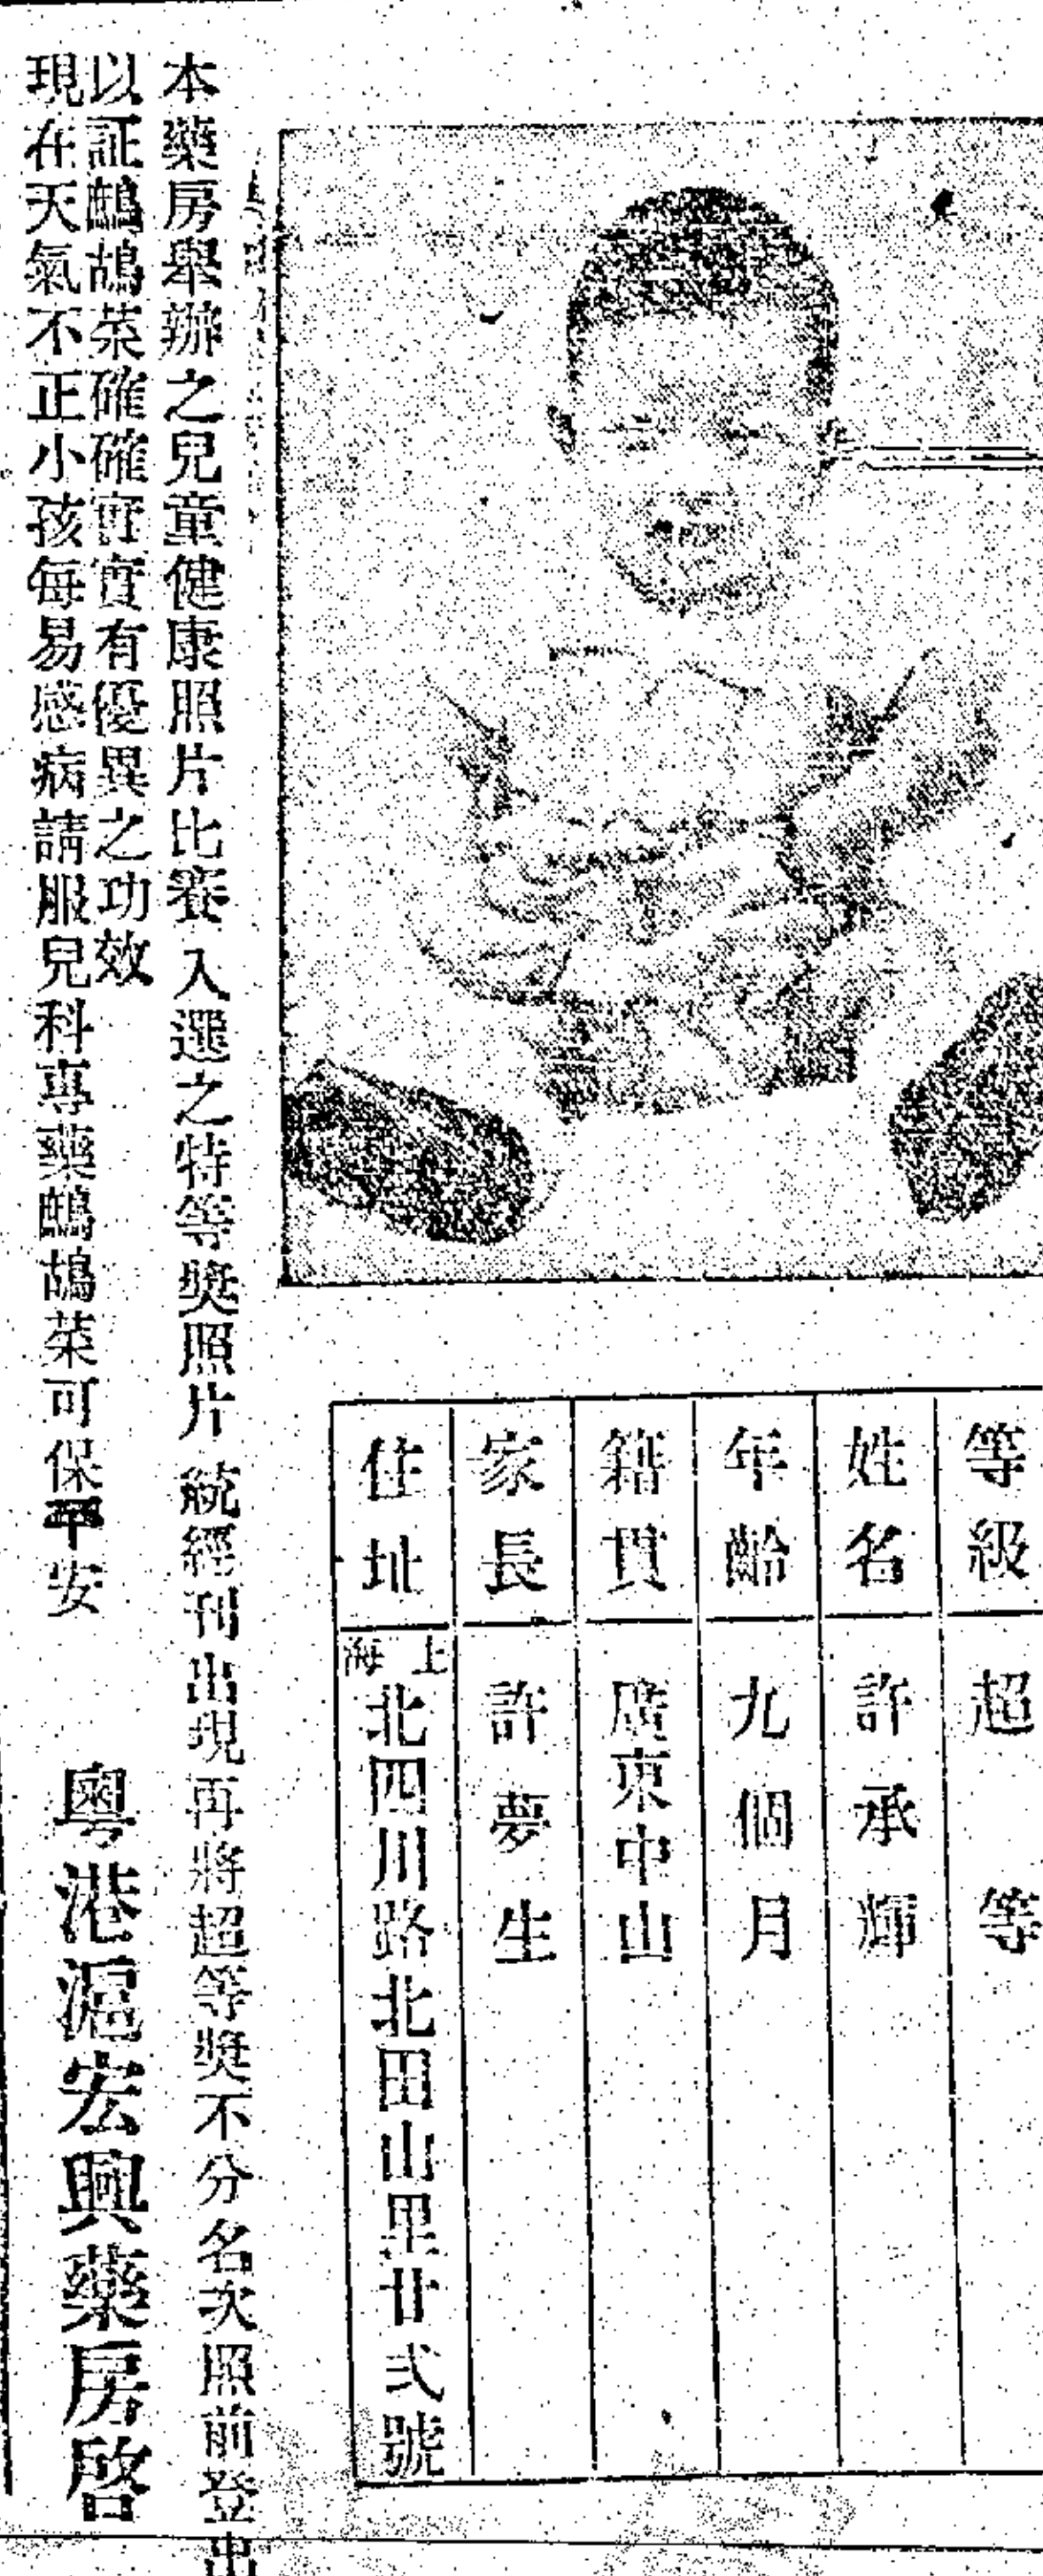 等級 超等
姓名 許承輝
年齡 九個月
籍貫 廣東中山
家長 許夢生
住址 上海北四川路北田山里廿弍號
本藥房舉辦之兒童健康照片比賽入選之特等獎照片統經刊出現再將超等獎不分名次照前登出
以証鷓鴣菜確確實實有優異之功效
現在天氣不正小孩每易感病請服兒科專藥鷓鴣菜可保平安
粵港滬宏興藥房啓